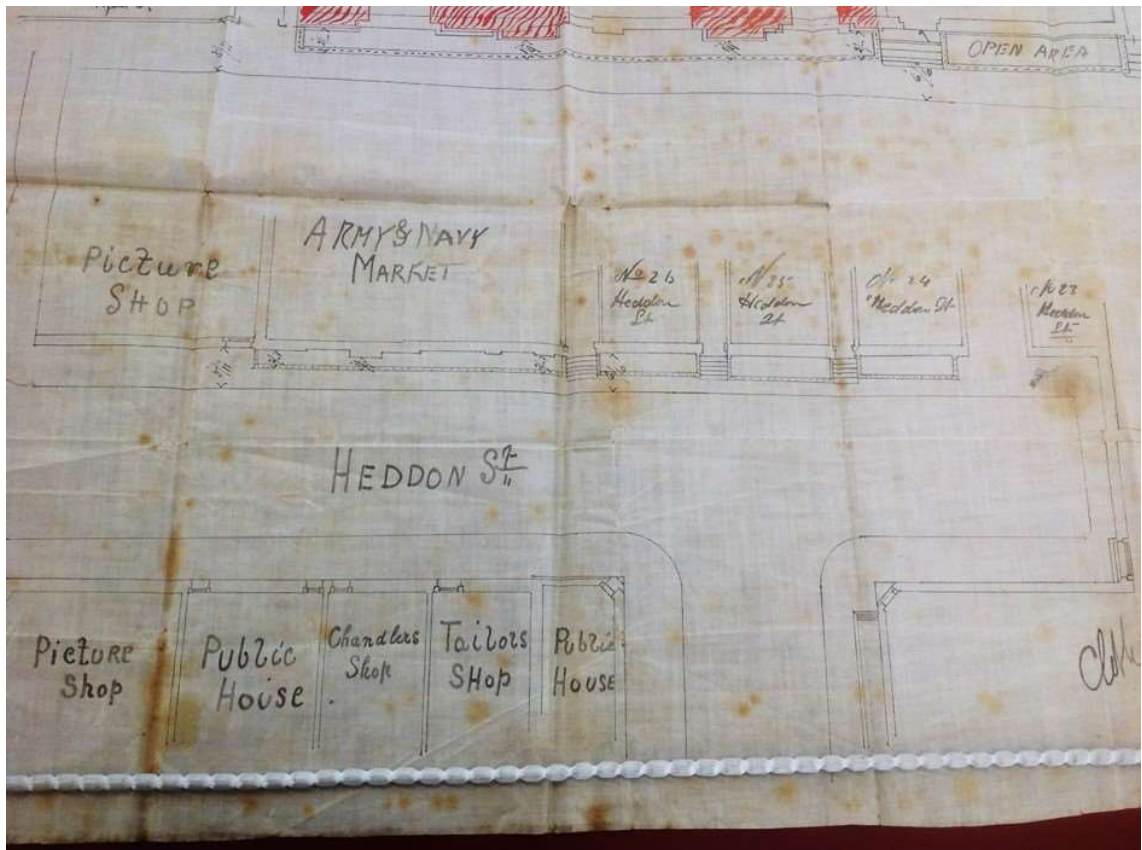 OPEN AREA
Picture
SHOP
ARMY & NAVY
MARKET
No 26
Heddon
St
No 25
Heddon
St
No 24
Heddon St
No 23
Heddon
St
HEDDON ST
Picture
Shop
Public
House
Chandlers
Shop
Tailors
SHop
Public
House